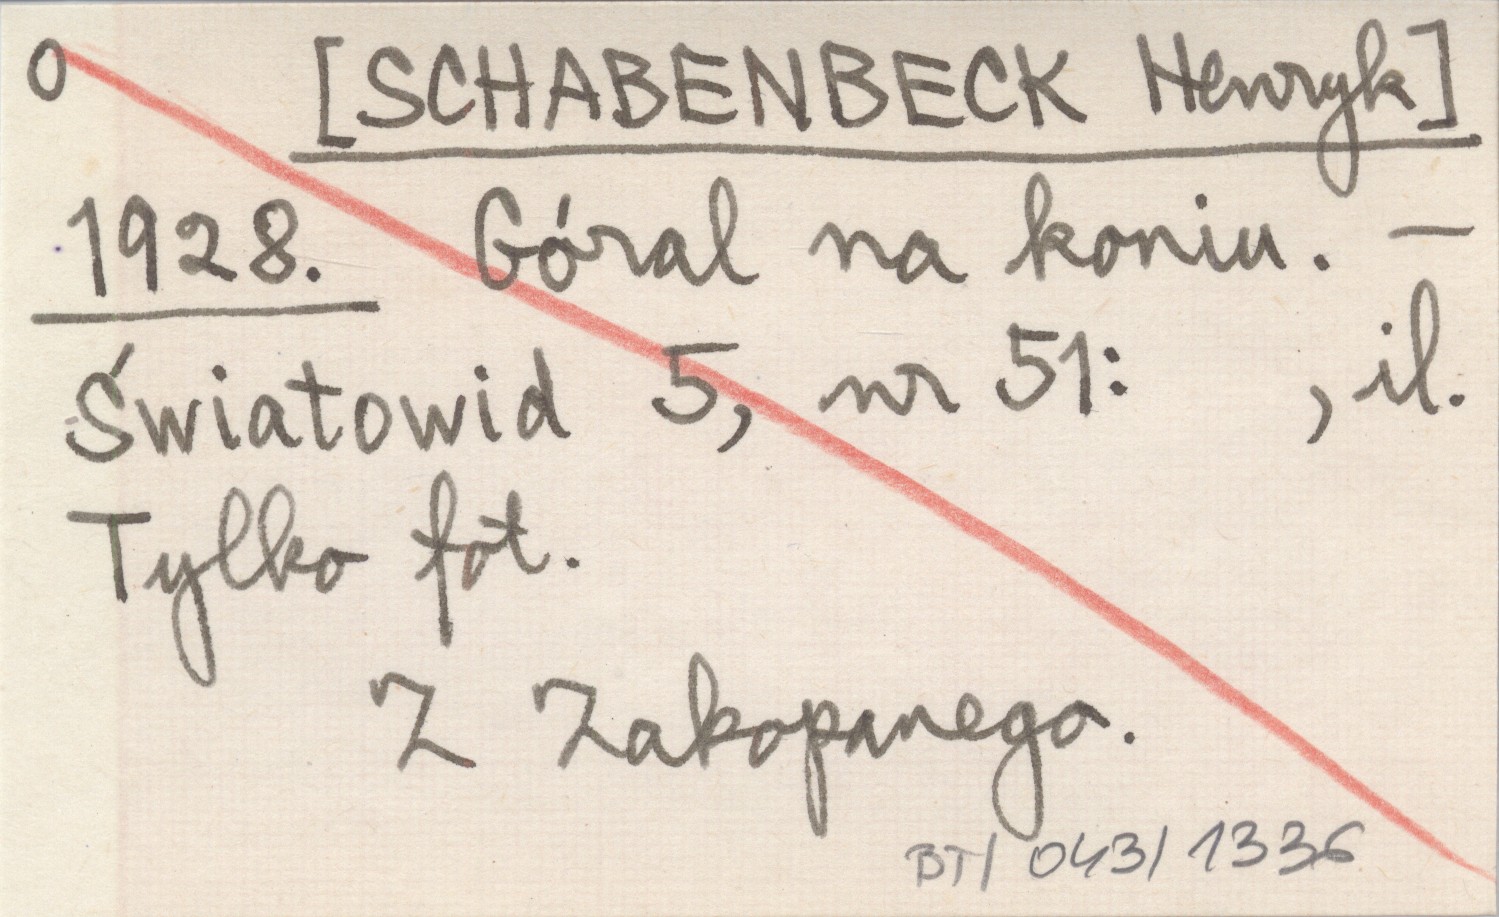 0 [SCHABENBECK Henryk]
1928. Góral na koniu. —
Światowid 5, nr 51: , il.
Tylko fot.
Z Zakopanego.
BT/ 043/ 1336